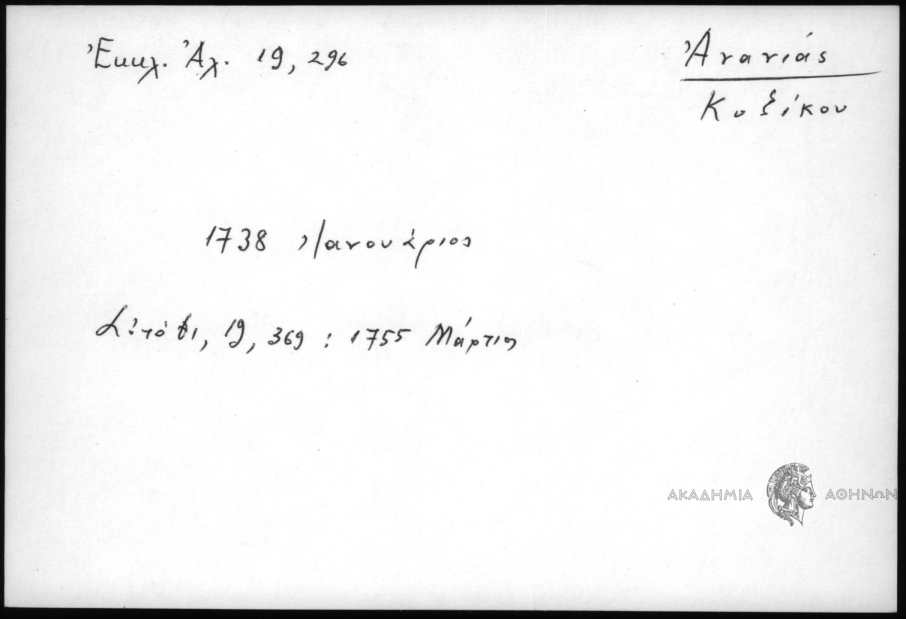 Ἐκκλ. Ἀλ. 19, 296
Ἀνανίας
Κυζίκου
1738 Ἰανουάριος
αὐτόθι, 19, 369 : 1755 Μάρτιος
ΑΚΑΔΗΜΙΑ ΑΘΗΝΩΝ